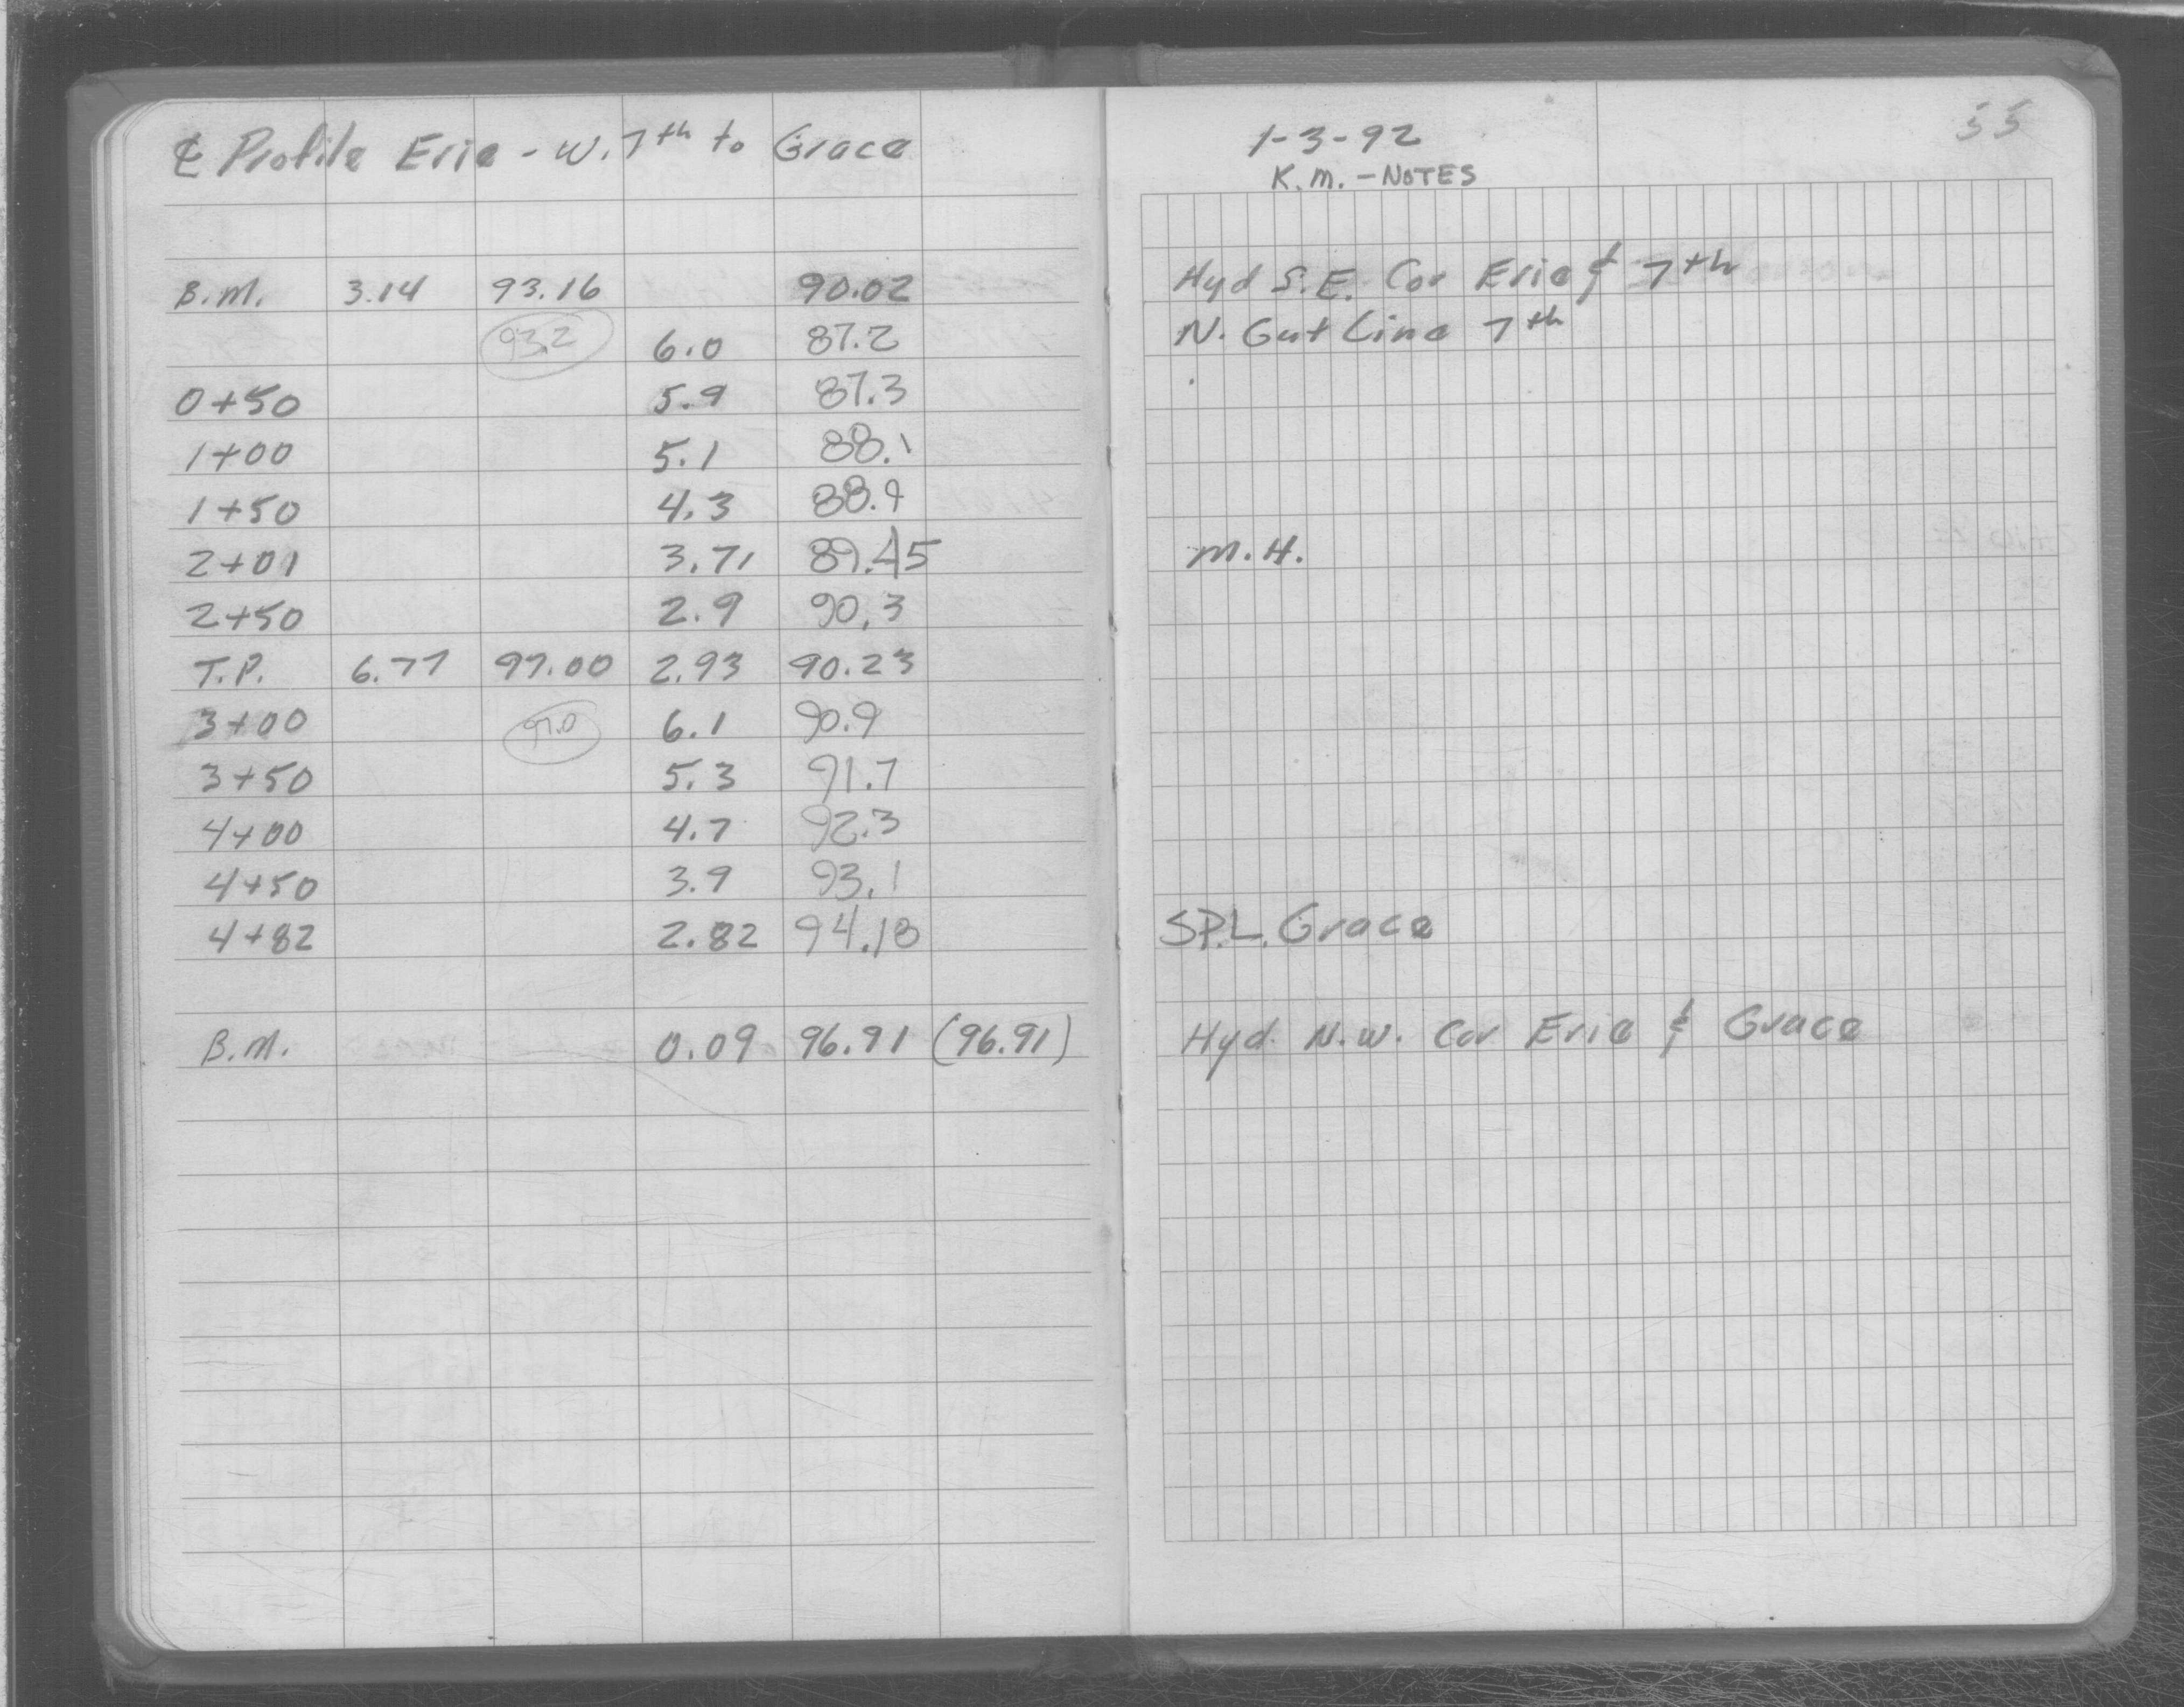 ℄ Profile Erie - W. 7th to Grace
1-3-92
55
K.M. - NOTES
B.M. 3.14 93.16 90.02 Hyd S.E. Cor Erie & 7th
93.2 6.0 87.2 N. Gut Line 7th
0+50 5.9 87.3
1+00 5.1 88.1
1+50 4.3 88.9
2+01 3.71 89.45 M.H.
2+50 2.9 90.3
T.P. 6.77 97.00 2.93 90.23
3+00 97.0 6.1 90.9
3+50 5.3 91.7
4+00 4.7 92.3
4+50 3.9 93.1
4+82 2.82 94.18 S.P.L. Grace
B.M. 0.09 96.91 (96.91) Hyd. N.W. Cor Erie & Grace